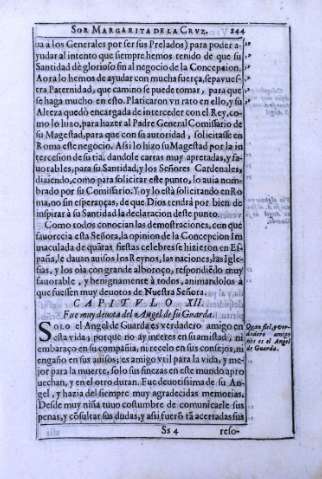 SOR MARGARITA DE LA CRVZ. 244
ua a los Generales por ser sus Prelados) para poder a-
yudar al intento que siempre hemos tenido de que su
Santidad dé glorioso fin al negocio de la Concepcion.
Aora lo hemos de ayudar con mucha fuerça, sepa vues-
tra Paternidad, que camino se puede tomar, para que
se haga mucho en esto. Platicaron vn rato en ello, y su
Alteza quedò encargada de interceder con el Rey, co-
mo lo hizo, para hazer al Padre General Comissario de
su Magestad, para que con su autoridad, solicitasse en
Roma este negocio. Assi lo hizo su Magestad por la in
tercesion de su tia, dandole cartas muy apretadas, y fa-
uorables, para su Santidad, y los Señores Cardenales,
diziendo, como para solicitar este punto, lo auia nom-
brado por su Comissario. Y oy lo està solicitando en Ro
ma, no sin esperanças, de que Dios tendrà por bien de
inspirar à su Santidad la declaracion deste punto.
Como todos conocian las demostraciones, con que
fauorecia esta Señora, la opinion de la Concepcion In-
maculada de quãtas fiestas celebres se hizieron en Espa-
ña, le dauan auisos los Reynos, las naciones, las Igle-
sias, y los oia con grande alboroço, respondiẽdo muy
fauorable, y benignamente à todos, animandolos a
que fuessen muy deuotos de Nuestra Señora.
CAPITVLO XII.
Fue muy deuota del Angel de su Guarda.
SOLO el Angel de Guarda es verdadero amigo en
esta vida, porque no ay interes en su amistad, ni
embaraço en su compañia, ni rezelo en sus consejos, ni
engaño en sus auisos; es amigo vtil para la vida, y me-
jor para la muerte, solo sus finezas en este mundo apro
uechan, y en el otro duran. Fue deuotissima de su An-
gel, y hazia del siempre muy agradecidas memorias.
Desde muy niña tuuo costumbre de comunicarle sus
penas, y cõsultar sus dudas, y assi fuerõ tã acertadas sus
Quan fiel, y ver-
dadero amigo
nos es el Angel
de Guarda.
Ss 4 reso-